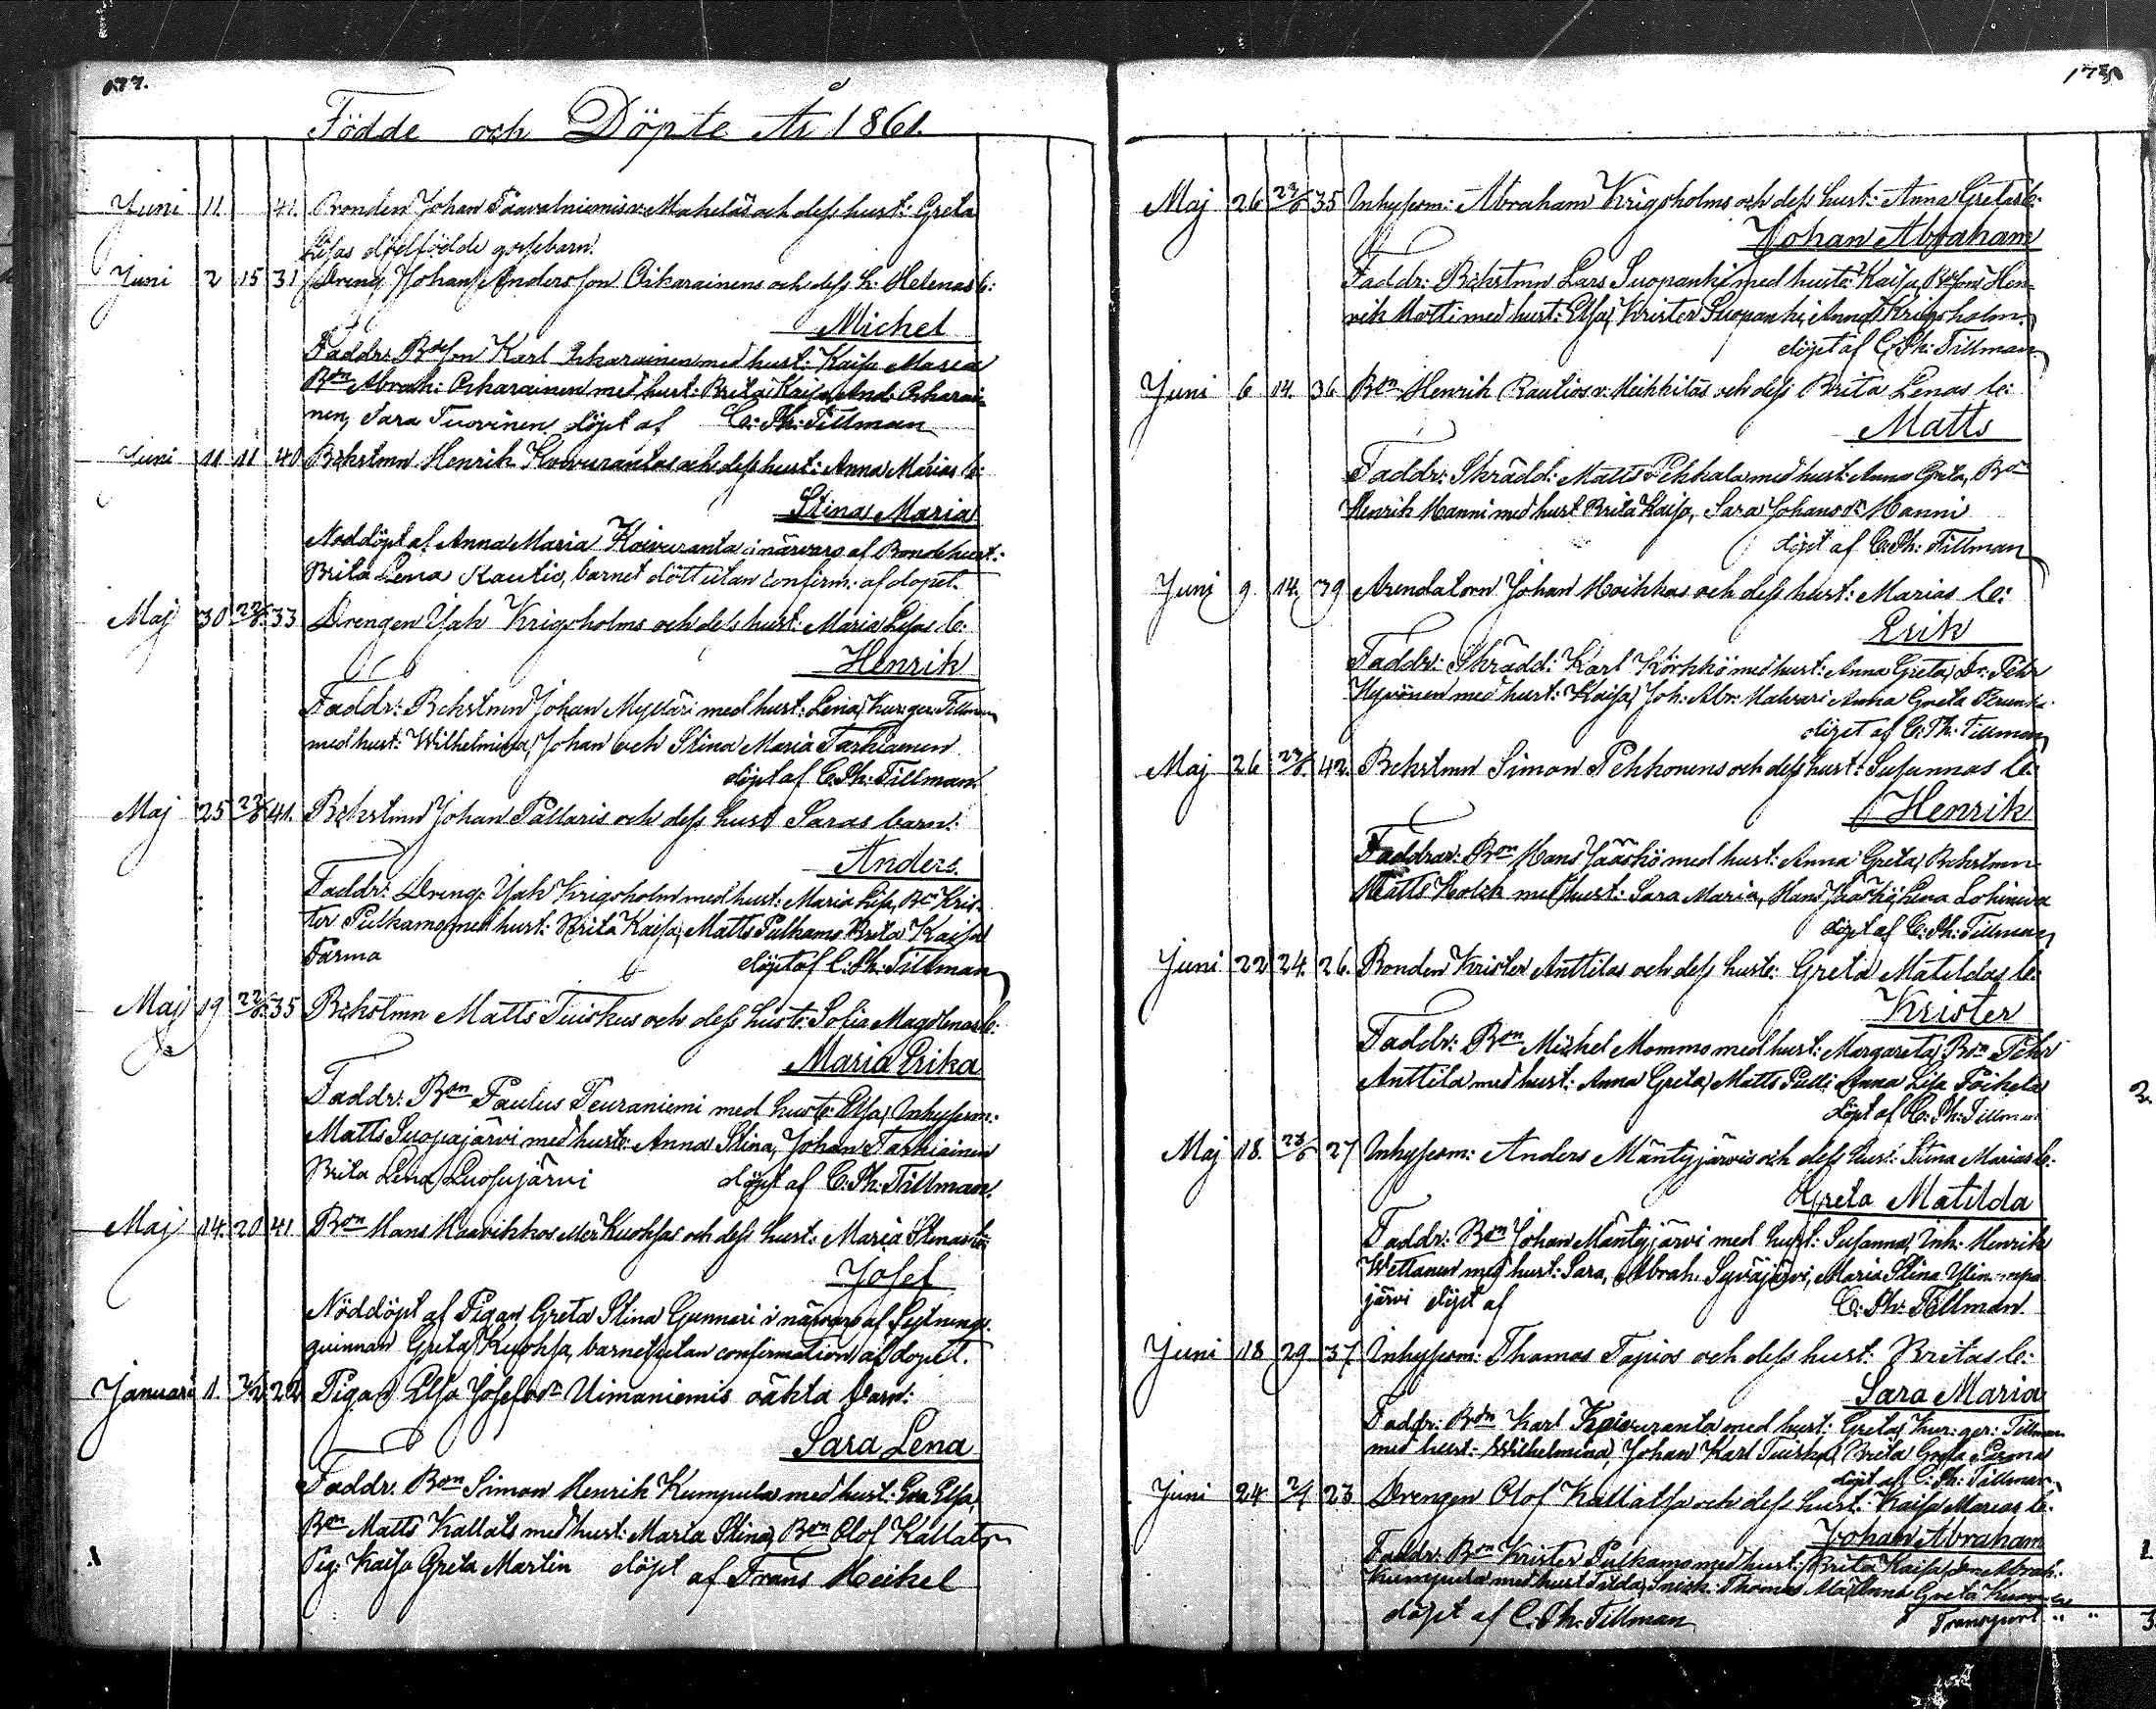 177.
Födde och Döpte År 1861.
Juni 11. 41. Bonden Johan Paavalniemis v: Mahelas och dess hust: Greta
Lisas dödfödde gossebarn.
Juni 2 15 31 Dreng Johan Andersson Oikarainens och dess h: Helenas b:
Michel
Faddr: Bdeson Karl Oikarainen med hust: Kaisa Maria
Bon Abrah: Oikarainen med hust: Brita Kaisa, And: Oikarai-
nen, Sara Tuovinen, döpt af C: Th: Tillman
Juni 11 11 40 Bckstmn Henrik Koivurantas och dess hust: Anna Marias b:
Stina Maria
Nöddöpt af Anna Maria Koivuranta i närvaro af Bondehust:
Brita Lena Rautio, barnet dött utan confirm: af dopet.
Maj 30 23/6 33 Drengen Isak Krigsholms och dess hust: Maria Lisas b:
Henrik
Faddr: Bckstmn Johan Mylläri med hust: Lena, Kur: ger: Tillman
med hust: Wilhelmina, Johan och Stina Maria Tarkiainen
döpt af C. Th: Tillman
Maj 25 23/6 41. Bckstmn Johan Pallaris och dess hust Saras barn:
Anders.
Faddr: Dreng: Isak Krigsholm med hust: Maria Lisa, Bn Kris-
ter Pulkamo med hust: Brita Kaisa, Matts Pulkamo Brita Kaisa
Parma döpt af C: Th: Tillman
Maj 19 23/6 35 Bckstmn Matts Tuiskus och dess hust: Sofia Magdlenas b:
Maria Erika
Faddr: Bon Paulus Peuraniemi med hust: Elsa, Inhysesm:
Matts Suopajärvi med hust: Anna Stina, Johan Tarkiainen
Brita Lena Luosujärvi döpt af C. Th: Tillman.
Maj 14. 20 41 Bon Hans Haavikkos eller Kuoksas och dess hust: Maria Stinas b:
Josef
Nöddöpt af Pigan Greta Stina Gunnari i närvaro af Sytnings-
quinnan Greta Kuoksa, barnet utan confirmation af dopet.
Januari 11. 3/2 22 Pigan Elsa Josefsdr Uimaniemis oäkta barn:
Sara Lena
Faddr: Bon Simon Henrik Kumpula med hust: Eva Elsa,
Bon Matts Kallats med hust: Maria Stina, Bon Olof Kallats
Pig: Kaisa Greta Martin döpt af Frans Heikel
Maj 26 23/6 35 Inhysesm: Abraham Krigsholms och dess hust: Anna Gretas b:
Johan Abraham
Faddr: Bckstmn Lars Suopanki med hust: Kaisa, Bdeson Hen-
rik Matti med hust: Elsa, Krister Suopanki, Anna Krigsholm
döpt af C: Th: Tillman
Juni 6 14. 36 Bon Henrik Rautios v: Heikkiläs och dess Brita Lenas b:
Matts
Faddr: Skrädd: Matts Pekkala med hust: Anna Greta, Bon
Henrik Hanni med hust Brita Kaisa, Sara Johansdr Hanni
döpt af C: Th: Tillman
Juni 9 14. 39 Arendatorn Johan Hoikkas och dess hust: Marias b:
Erik
Faddr: Skrädd: Karl Körkkö med hust: Anna Greta, Dr: Pehr
Hyvönen med hust: Kaisa, Joh: Abr: Halvari Anna Greta
döpt af C. Th: Tillman
Maj 26 23/6 42. Bckstmn Simon Pekkonens och dess hust: Susannas b:
Henrik
Faddrar: Bon Hans Jääskö med hust: Anna Greta, Bckstmn
Matts Kolck med hust: Sara Maria, Hans Jääskö, Lena Lohiniva
döpt af C: Th: Tillman
Juni 22 24. 26. Bonden Krister Anttilas och dess hust: Greta Matildas b:
Krister
Faddr: Bon Michel Mommo med hust: Margareta, Bon Pehr
Anttila med hust: Anna Greta, Matts Pulli, Anna Lisa Poikela
döpt af C. Th: Tillman
Maj 18. 23/6 27 Inhysesm: Anders Mäntyjärvis och dess hust: Stina Marias b:
Greta Matilda
Faddr: Bon Johan Mäntyjärvi med hust: Susanna, Inh: Henrik
Wettanen med hust: Sara, Abrah. Syväjärvi, Maria Stina
järvi döpt af C: Th: Tillman
Juni 18 29. 37 Inhysesm: Thomas Tapios och dess hust: Britas b:
Sara Maria
Faddr: Bon Karl Koivuranta med hust: Greta, Kur: ger: Tillman
med hust: Wilhelmina, Johan Karl Tuisku, Brita Greta Parma
döpt af C: Th: Tillman
Juni 24 2/7 23 Drengen Olof Kallatsa och dess hust: Kaisa Marias b:
Johan Abraham
Faddr: Bon Krister Pulkamo med hust: Brita Kaisa, Abrah:
Kumpula med hust Tilda, Snick: Thomas Anna Greta
döpt af C. Th: Tillman Transport " "
2.
1
3